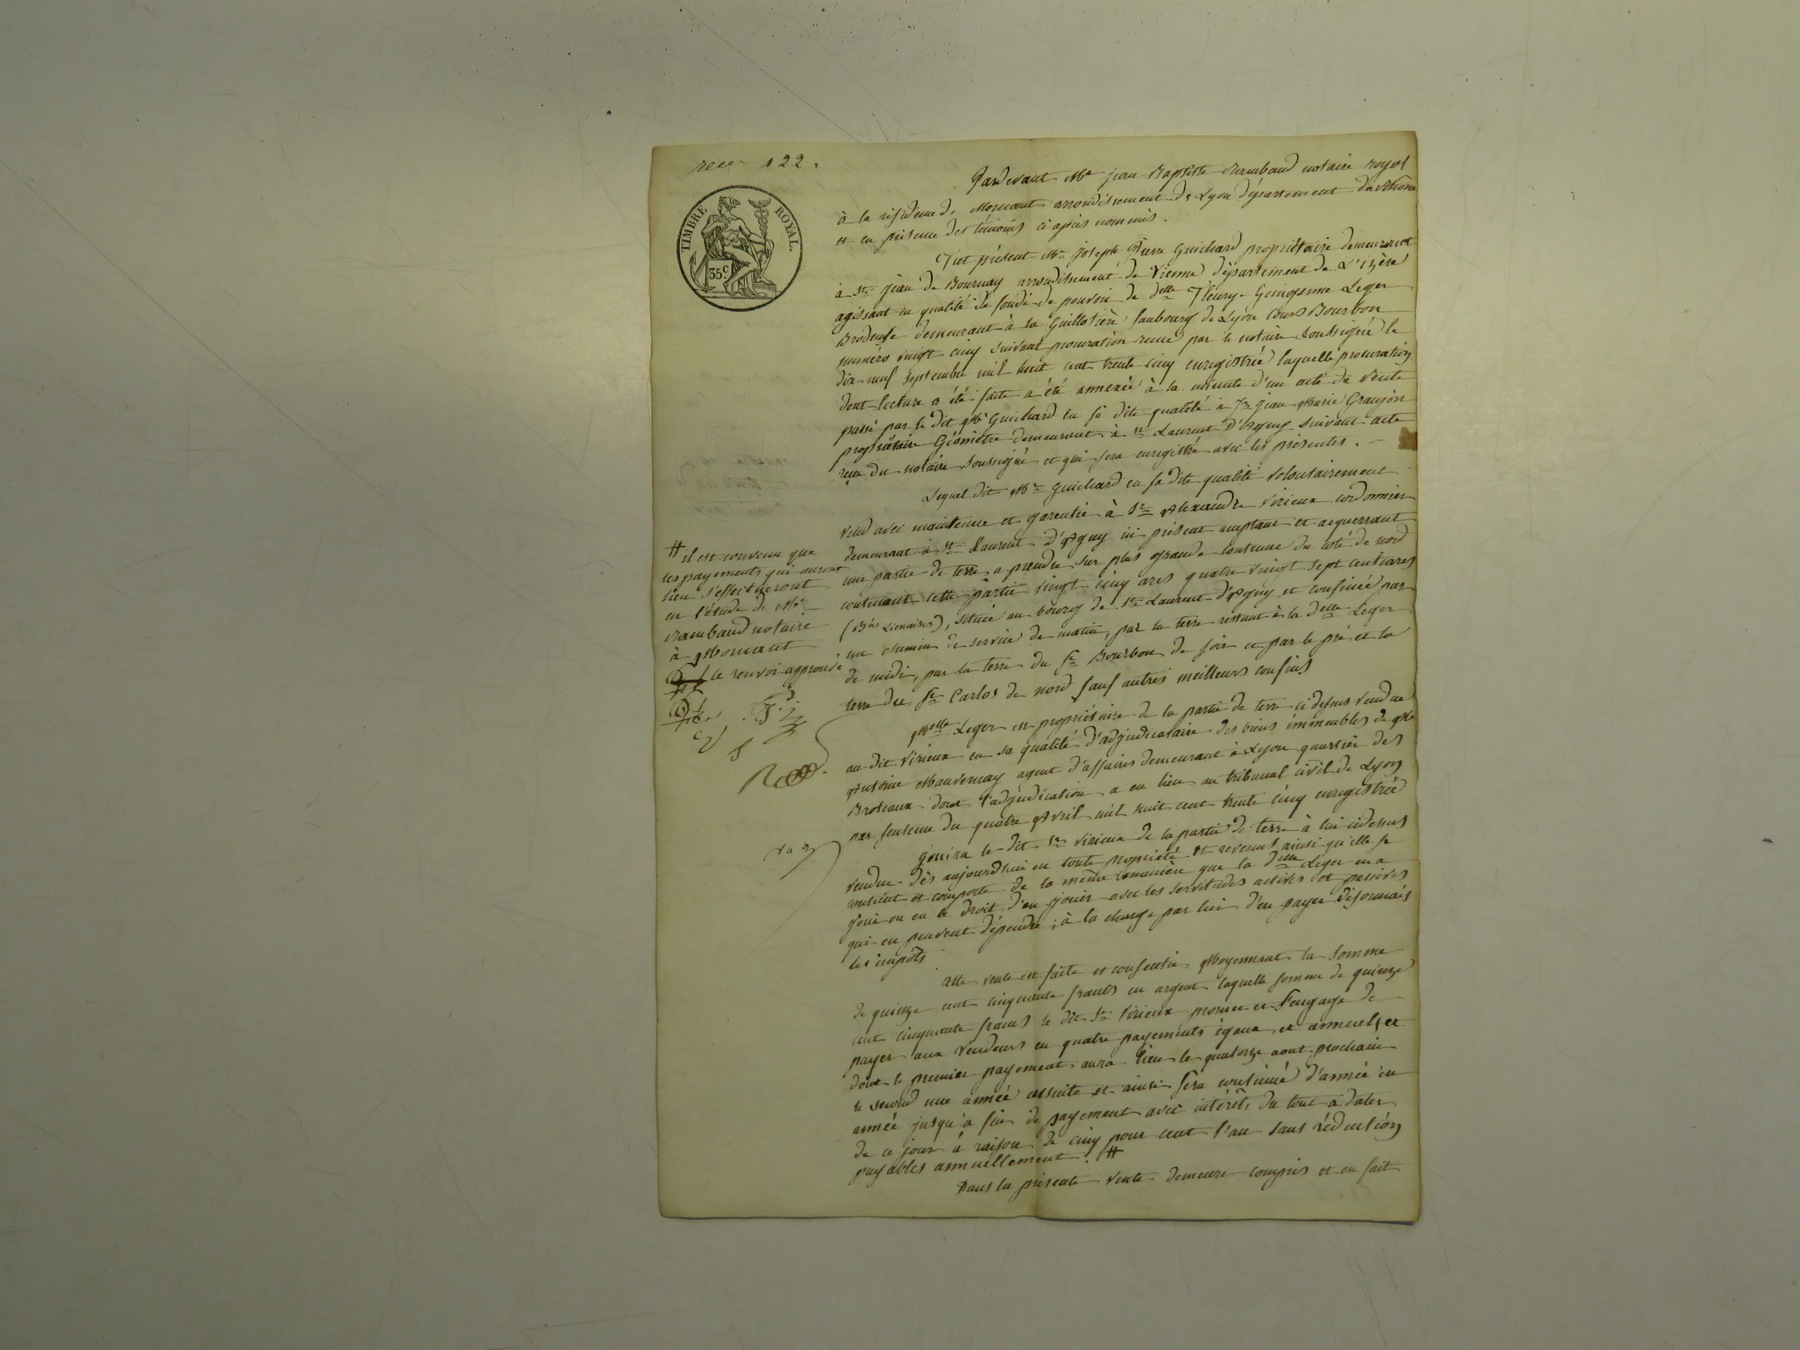 122.
TIMBRE ROYAL.
35.c
Pardevant Me jean Baptiste Rambaud notaire royal
à la résidence de Mornant arrondissement de Lyon département du Rhône
et en présence des témoins ci après nommés.
Fut présent Mr joseph Pierre Guichard propriétaire demeurant
à St jean de Bournay arrondissement de Vienne département de L'izère
agissant en qualité de fondé de pouvoir de delle Fleury Leger
Brodeuse demeurant à la Guillotière faubourg de Lyon cours Bourbon
numéro vingt cinq suivant procuration reçue par le notaire soussigné le
dix neuf septembre mil huit cent trente cinq enregistrée laquelle procuration
dont lecture a été faite a été annexée à la minute d'un acte de vente
passé par le dit Mr Guichard en sa dite qualité à Sr jean Marie Granjon
propriétaire Géomètre demeurant à St Laurent D'Agny suivant acte
reçu du notaire soussigné et qui sera enregistré avec les présentes.
Lequel dit Mr Guichard en sa dite qualité volontairement
vend avec maintenue et garentie à Sr Alexandre Virieux cordonnier
demeurant à St Laurent d'Agny ici présent acceptant et acquerrant
une partie de terre a prendre sur plus grande contenue du coté de nord
contenant cette partie vingt cinq ares quatre vingt sept centiares
située au bourg de St Laurent d'Agny et confinée par
un chemin de service de matin, par la terre restant à la delle Leger
de midi, par la terre du Sr Bourbon de soir et par le pré et la
terre du Sr Carlos de nord sauf autres meilleurs confins
Melle Leger est propriétaire de la partie de terre ci dessus vendue
au dit Virieux en sa qualité d'adjudicataire des biens immeubles de Mr
Antoine Mauvernay agent d'affaires demeurant à Lyon quartier des
Broteaux dont l'adjudication a eu lieu au tribunal civil de Lyon
par sentence du quatre Avril mil huit cent trente cinq enregistrée
jouira le dit Sr Virieux de la partie de terre à lui ci dessus
vendue dès aujourd'hui en toute propriété et revenus ainsi qu'elle se
consiste et comporte de la même manière que la delle Leger en a
joui ou eu le droit d'en jouir avec les servitudes actives et passives
qui en peuvent dépendre; à la charge par lui d'en payer désormais
les impôts
Cette vente est faite et consentie Moyennant la somme
de quinze cent cinquante francs en argent laquelle somme de quinze
cent cinquante francs le dit Sr Virieux promet et s'engage de
payer aux vendeurs en quatre payements égaux et annuels et
dont le premier payement aura lieu le quatorze aout prochain
le second une année ensuite et ainsi sera continué d'année en
année jusqu'à fin de payement avec intérêts du tout à dater
de ce jour à raison de cinq pour cent l'an sans réduction
payables annuellement. #
Dans la présente vente demeure compris et en fait
# il est convenu que
les payements qui auront
lieu s'effectueront
en l'étude de Me
Rambaud notaire
à Mornant
le renvoi approuvé